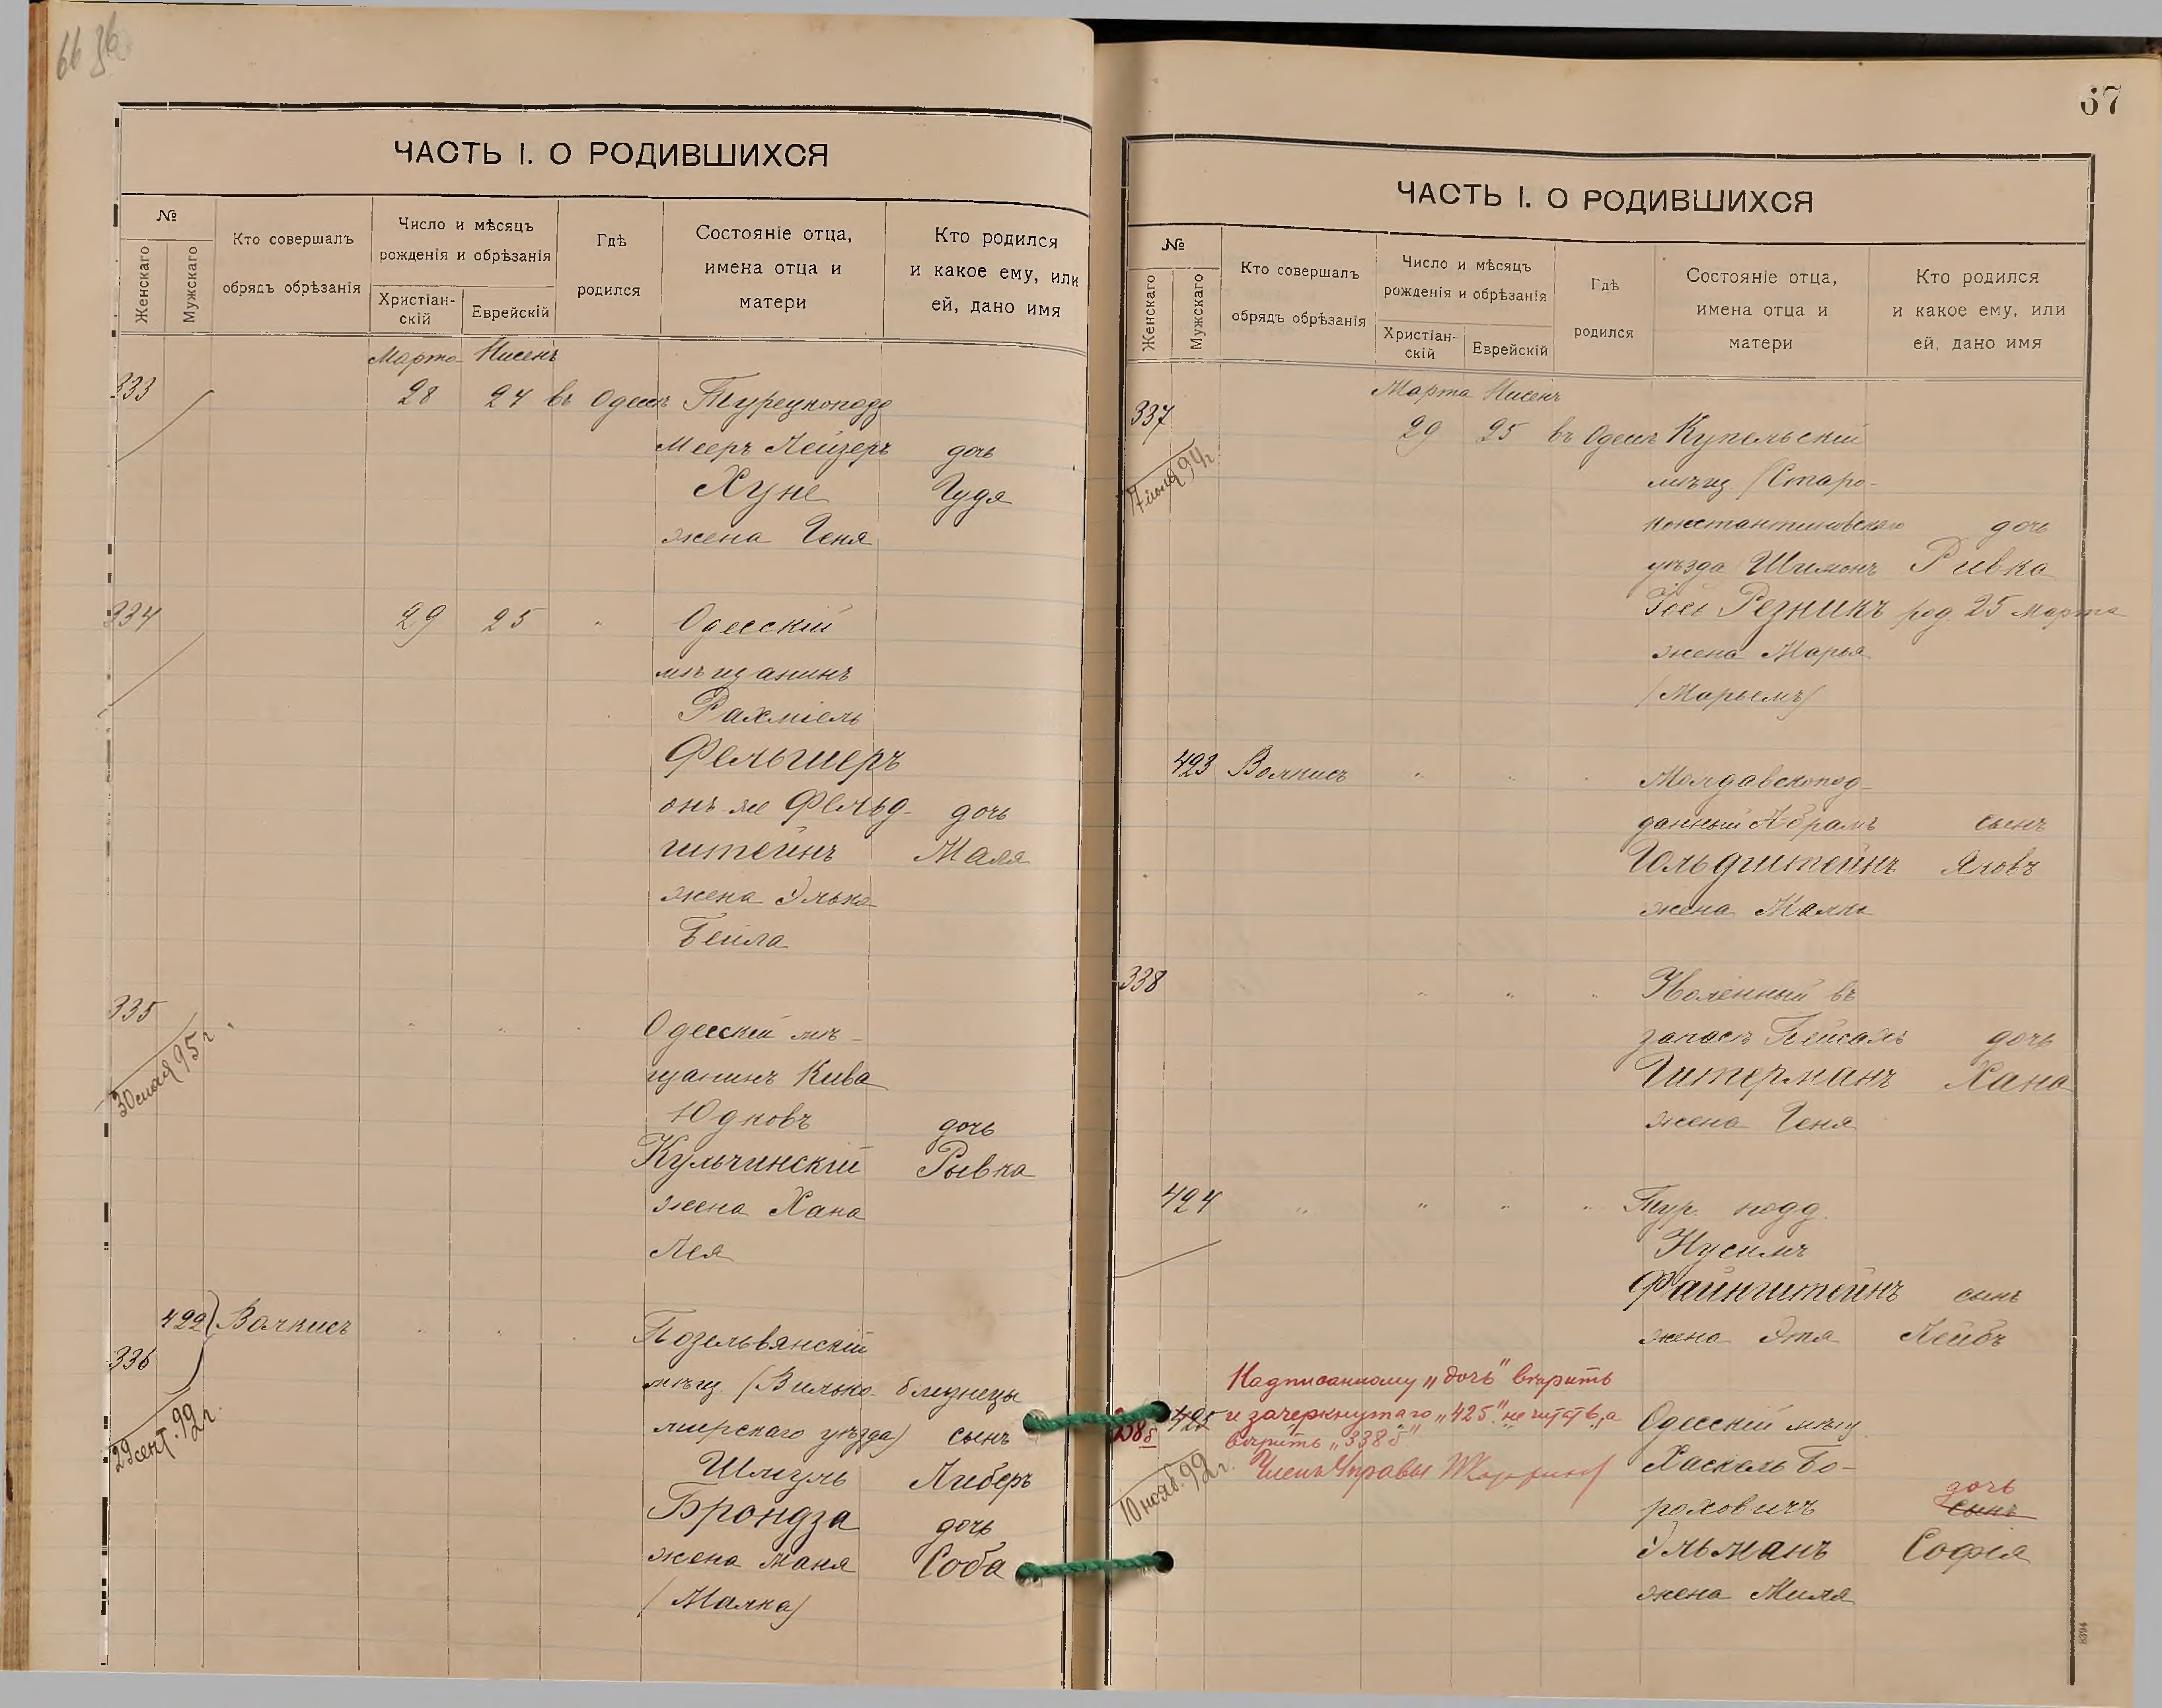 66 36
ЧАСТЬ I. О РОДИВШИХСЯ
№
Женскаго
Мужскаго
Кто совершалъ
обрядъ обрѣзанія
Число и мѣсяцъ
рожденія и обрѣзанія
Христіан-
скій
Еврейскій
Гдѣ
родился
Состояніе отца,
имена отца и
матери
Кто родился
и какое ему, или
ей, дано имя
Марта Нисенъ
333 28 24 въ Одессѣ Турецкоподд
Мееръ Лейзеръ дочь
Хуне Гудя
жена Геня
334 29 25 " Одесскій
мѣщанинъ
Рахміель
Фельшеръ
онъ же Фельд-
штейнъ дочь Маля
жена Элька
Бейла
335 " " " Одесскій мѣ-
30 мая 95 г.
щанинъ Кива
Юдковъ дочь
Кульчинскій Рывка
жена Хана
Лея
422 Волкисъ " " " Позельвянскій
336
мѣщ. (Вилько- близнецы
29 сент. 99 г.
мирскаго уѣзда) сынъ
Шмуль Либеръ
Брондза дочь
жена Маня Соба
(Малка)
67
ЧАСТЬ I. О РОДИВШИХСЯ
№
Женскаго
Мужскаго
Кто совершалъ
обрядъ обрѣзанія
Число и мѣсяцъ
рожденія и обрѣзанія
Христіан-
скій
Еврейскій
Гдѣ
родился
Состояніе отца,
имена отца и
матери
Кто родился
и какое ему, или
ей, дано имя
Марта Нисенъ
337 29 25 въ Одессѣ Купельскій
7 іюня 94 г.
мѣщ. (Старо-
константиновскаго дочь
уѣзда Шимонъ Ривка
Резникъ род. 25 марта
жена Марья
(Марьемъ)
423 Волкисъ " " " Молдавскопод-
данный Абрамъ сынъ
Гольдштейнъ Яковъ
жена Малка
338 " " " Уволенный въ
запасъ Пейсахъ дочь
Гитерманъ Хана
жена Геня
424 " " " " Тур. подд.
Нусимъ
Файнштейнъ сынъ
жена Этя Лейбъ
Надписанному „дочь" вѣрить
и зачеркнутаго „425" не читать, а
вѣрить „338 б"
Членъ Управы
338 б 425 Одесскій мѣщ.
10 нояб. 99 г.
Хаскель Бо-
роховичъ дочь
сынъ
Эльманъ Софія
жена Миля
8394